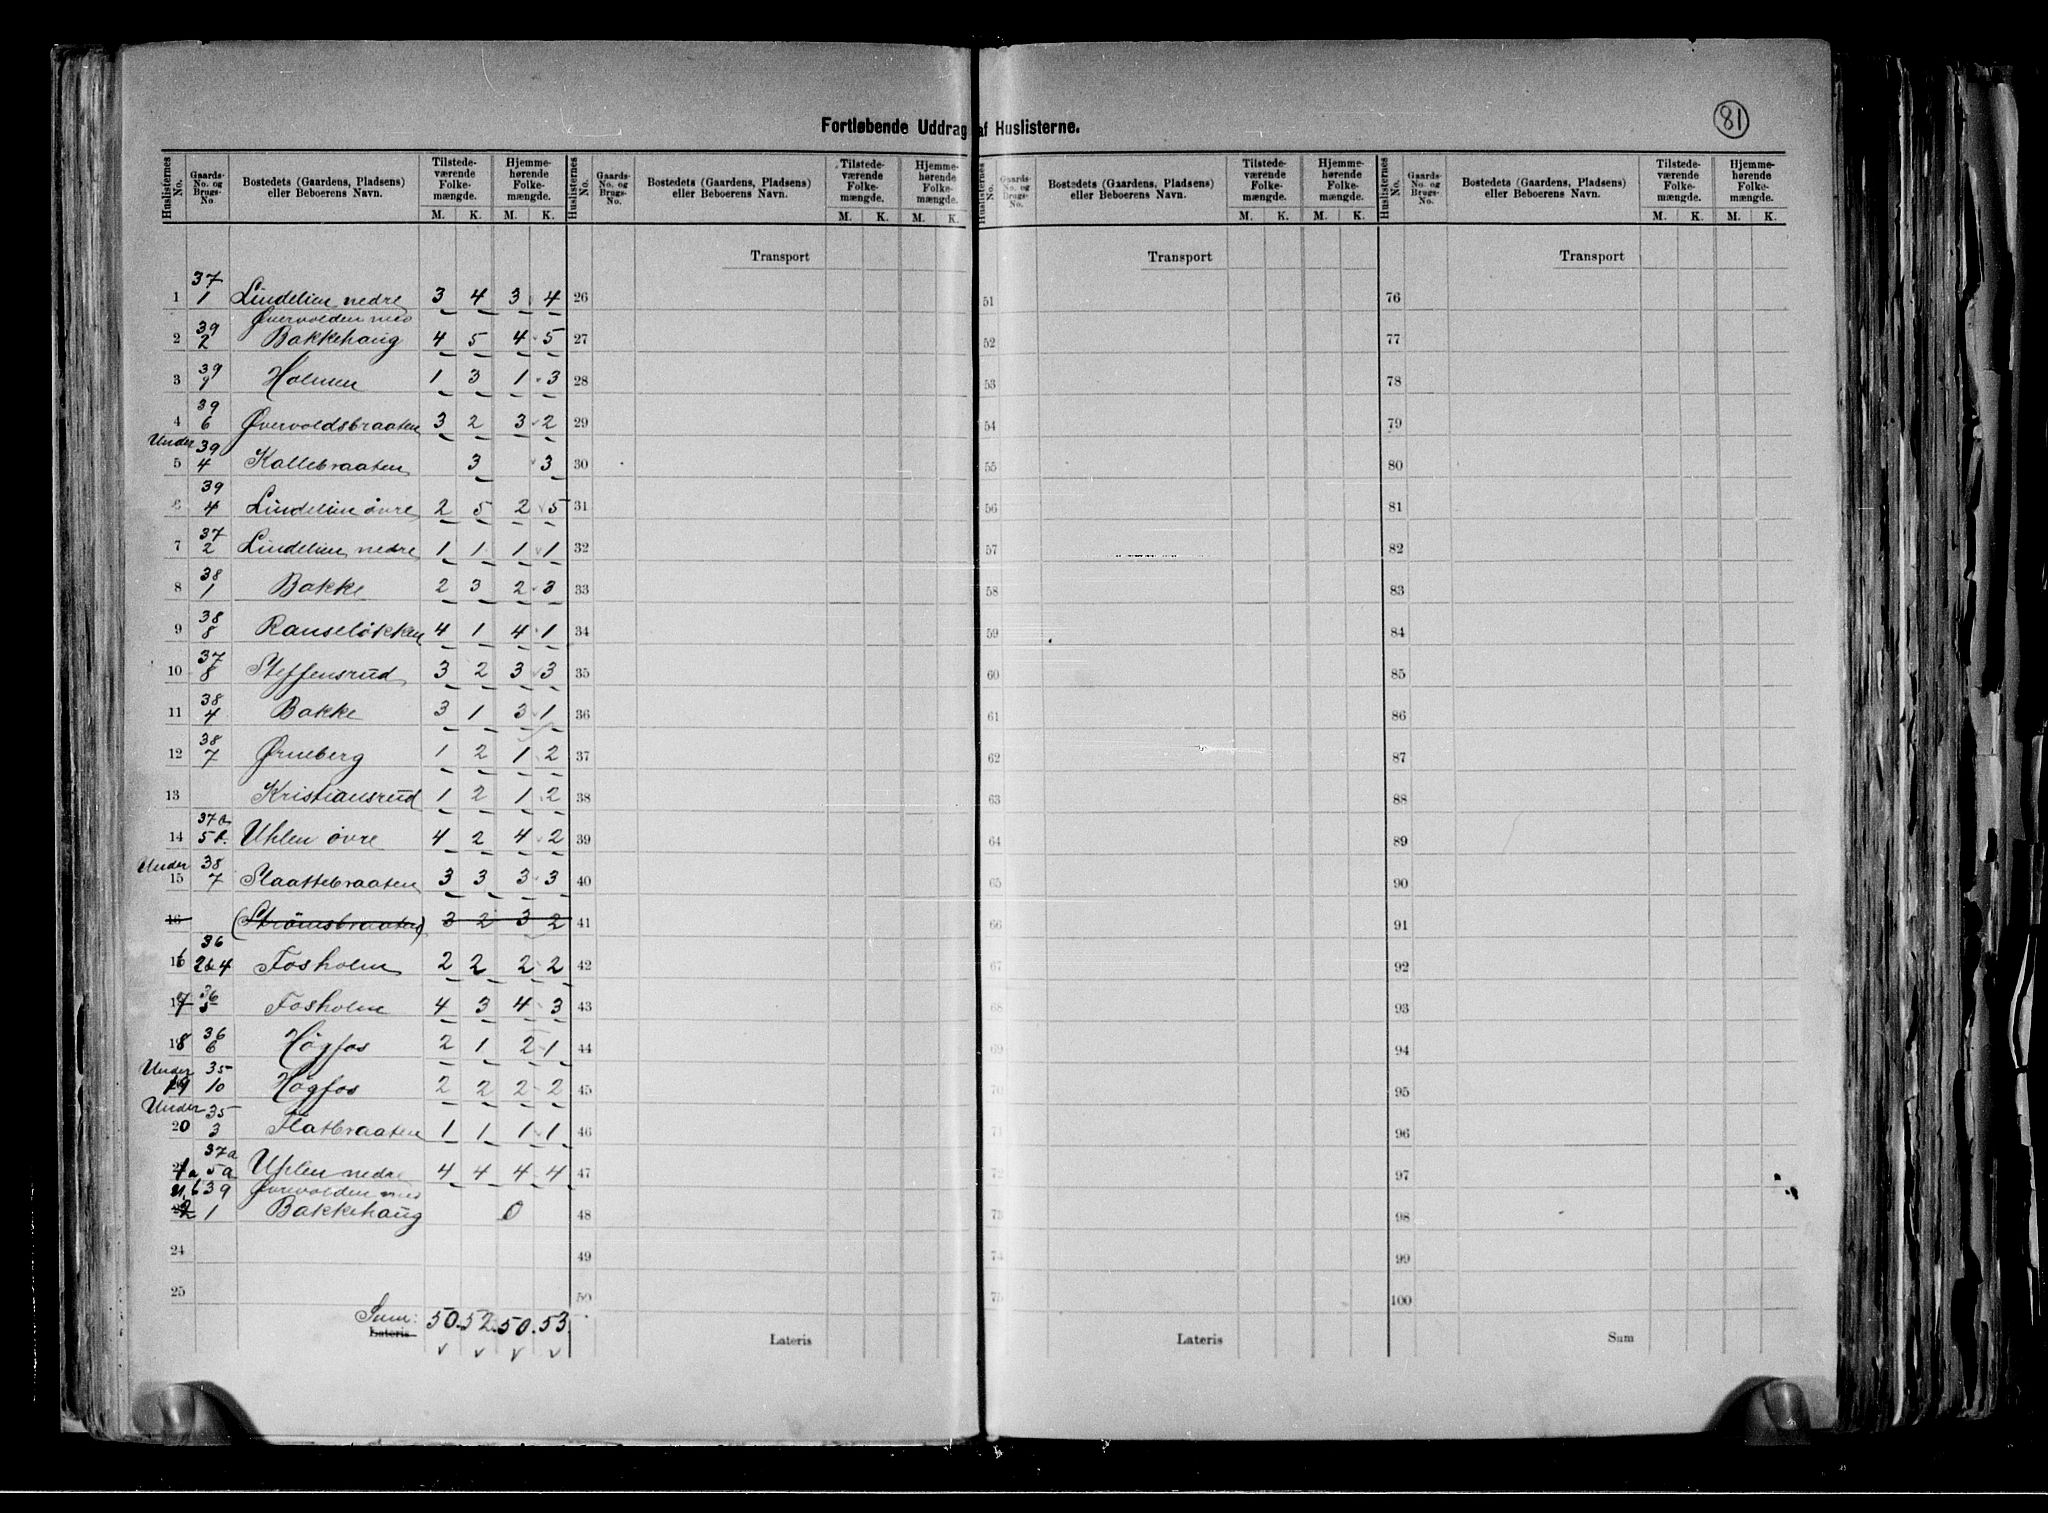 81
Fortløbende Uddrag af Huslisterne.
Huslisternes No. Gaards-No. og Brugs-No. Bostedets (Gaardens, Pladsens) eller Beboerens Navn. Tilstedeværende Folkemængde. M. K. Hjemmehørende Folkemængde. M. K.
Huslisternes No. Gaards-No. og Brugs-No. Bostedets (Gaardens, Pladsens) eller Beboerens Navn. Tilstedeværende Folkemængde. M. K. Hjemmehørende Folkemængde. M. K.
Huslisternes No. Gaards-No. og Brugs-No. Bostedets (Gaardens, Pladsens) eller Beboerens Navn. Tilstedeværende Folkemængde. M. K. Hjemmehørende Folkemængde. M. K.
Huslisternes No. Gaards-No. og Brugs-No. Bostedets (Gaardens, Pladsens) eller Beboerens Navn. Tilstedeværende Folkemængde. M. K. Hjemmehørende Folkemængde. M. K.
Transport Transport Transport
37
1 1 Lindelien nedre 3 4 3 4 26 51 76
Øvervolden med
39
2 2 Bakkehaug 4 5 4 5 27 52 77
39
3 9 Holmen 1 3 1 3 28 53 78
39
4 6 Øvervoldsbraaten 3 2 3 2 29 54 79
Under 39
5 4 Kollebraaten 3 3 30 55 80
39
6 4 Lindelien øvre 2 5 2 5 31 56 81
37
7 2 Lindelien nedre 1 1 1 1 32 57 82
38
8 1 Bakke 2 3 2 3 33 58 83
38
9 8 Ranseløkken 4 1 4 1 34 59 84
37
10 8 Steffensrud 3 2 3 3 35 60 85
38
11 4 Bakke 3 1 3 1 36 61 86
38
12 7 Ørneberg 1 2 1 2 37 62 87
13 Kristiansrud 1 2 1 2 38 63 88
37a
14 5b. Uhlen øvre 4 2 4 2 39 64 89
Under 38
15 7 Slaattebraaten 3 3 3 3 40 65 90
16 (Strømsbraaten) 3 2 3 2 41 66 91
36
16 2&4 Fosholm 2 2 2 2 42 67 92
36
17 5 Fosholm 4 3 4 3 43 68 93
36
18 6 Høgfos 2 1 2 1 44 69 94
Under 35
19 10 Høgfos 2 2 2 2 45 70 95
Under 35
20 3 Flatbraaten 1 1 1 1 46 71 96
37a
21a 5a Uhlen nedre 4 4 4 4 47 72 97
21b 39 Øvrevolden med
22 1 Bakkehaug 0 48 73 98
24 49 74 99
25 50 75 100
Sum: 50. 52. 50. 53.
Lateris Lateris Lateris Sum